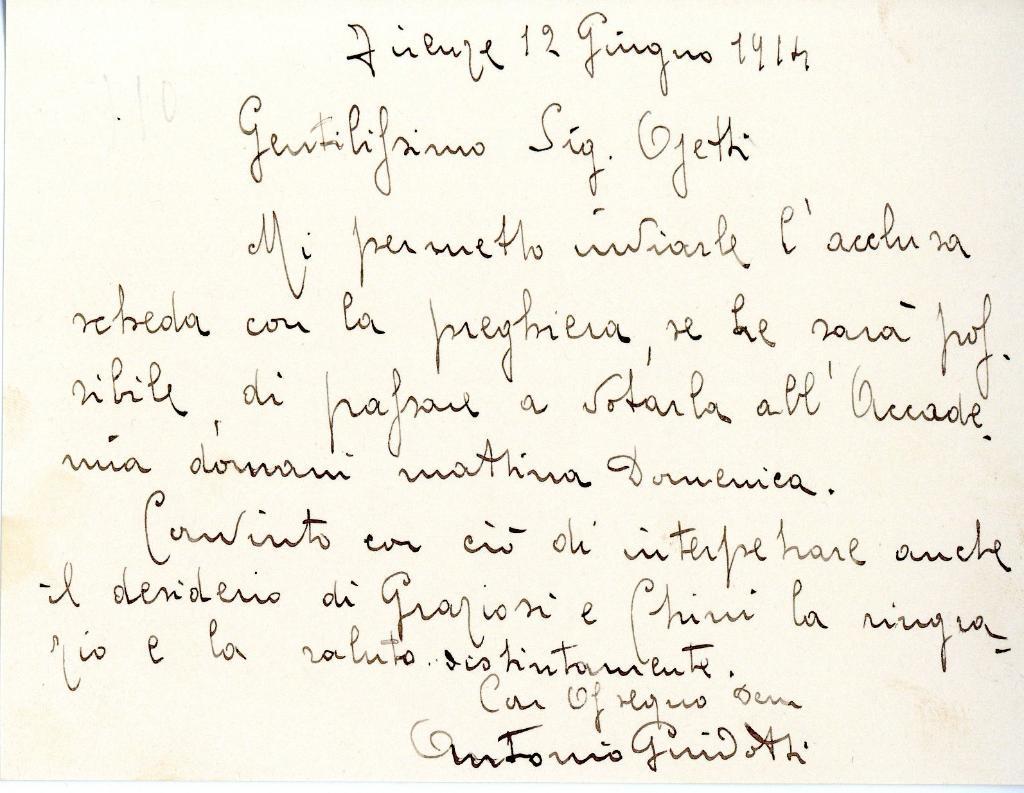 Firenze 12 Giugno 1914
Gentilissimo Sig. Ojetti
Mi permetto inviarle l'acclusa
scheda con la preghiera, se Le sarà pos-
sibile, di passare a votarla all'Accade-
mia domani mattina Domenica.
Convinto con ciò di interpetrare anche
il desiderio di Graziosi e Chini la ringra-
zio e la saluto distintamente.
Con Ossequio Dev
Antonio Guidotti